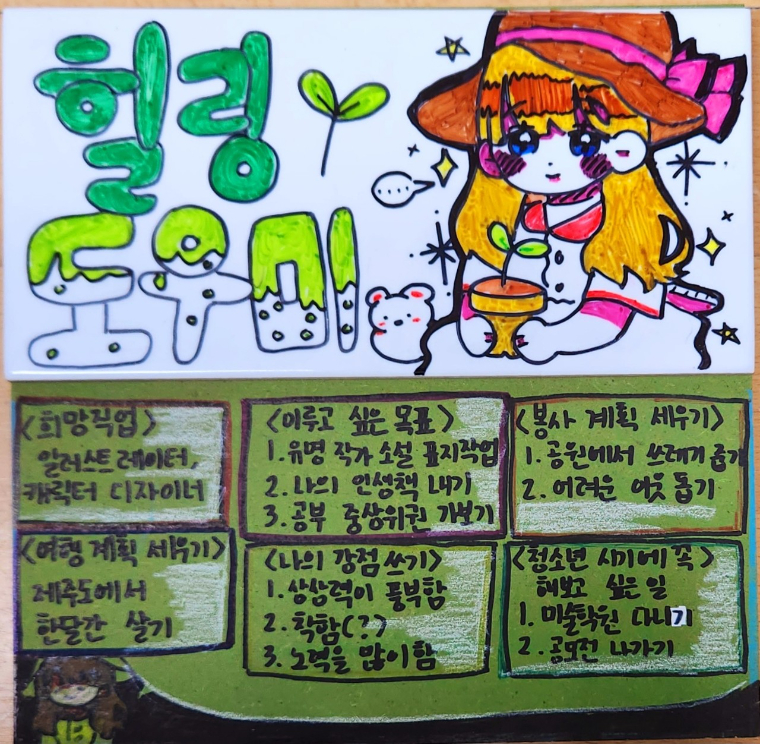 힐링
도우미
....
<희망직업>
일러스트레이터,
캐릭터 디자이너
<이루고 싶은 목표>
1. 유명 작가 소설 표지작업
2. 나의 인생책 내기
3. 공부 중상위권 가보기
<봉사 계획 세우기>
1. 공원에서 쓰레기 줍기
2. 어려운 이웃 돕기
<여행 계획 세우기>
제주도에서
한달간 살기
<나의 강점 쓰기>
1. 상상력이 풍부함
2. 착함(?)
3. 노력을 많이 함
<청소년 시기에 꼭>
해보고 싶은 일
1. 미술학원 다니기
2. 공모전 나가기